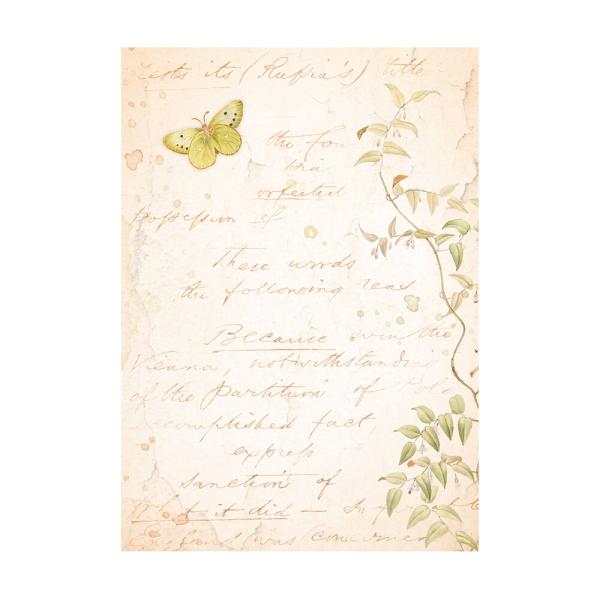 its (Russia's) title
the
orfeited
possession of
These words
the following reas
Because in the
Vienna, notwithstanding
of the Partition of Pola
accomplished fact,
express
sanction of
it did —
was concerned